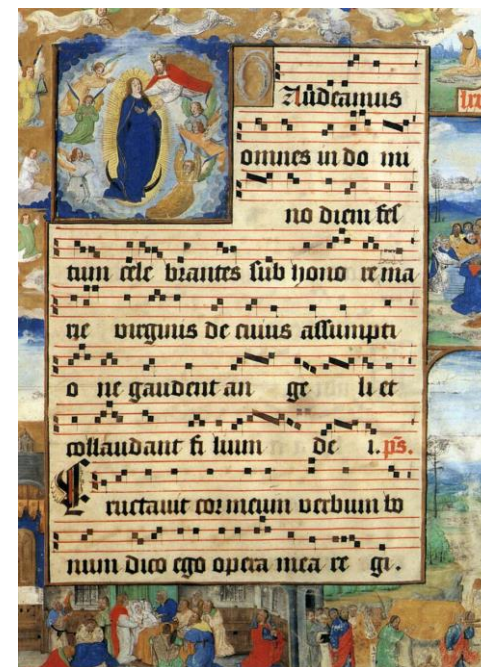 Gaudeamus
omnes in do mi
no diem fes
tum cele brantes sub hono re ma
rie virginis de cuius assumpti
o ne gaudent an ge li et
collaudant fi lium de i. ps.
Eructavit cor meum verbum bo
num dico ego opera mea re gi.